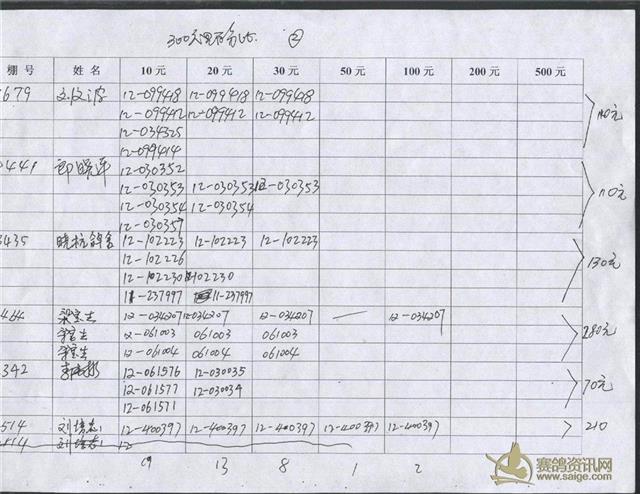 300 ②
棚号 姓名 10元 20元 30元 50元 100元 200元 500元
679 12-099418 12-099418 12-099418
12-099412 12-099412 12-099412 140元
12-034325
12-099414
441 郎晓萍 12-030352
12-030353 12-030353 12-030353 110元
12-030354 12-030354
12-030357
3435 晓杭鸽舍 12-102223 12-102223 12-102223
12-102226 130元
12-102230 102230
11-237997 11-237997
464 梁宝生 12-034207 12-034207 12-034207 — 12-034207
宝生 12-061003 061003 061003 280元
宝生 12-061004 061004 061004
342 12-061576 12-030035
12-061577 12-030034 70元
12-061571
514 刘培志 12-400397 12-400397 12-400397 12-400397 12-400397 210
19 13 8 1 2
赛鸽资讯网
www.saige.com